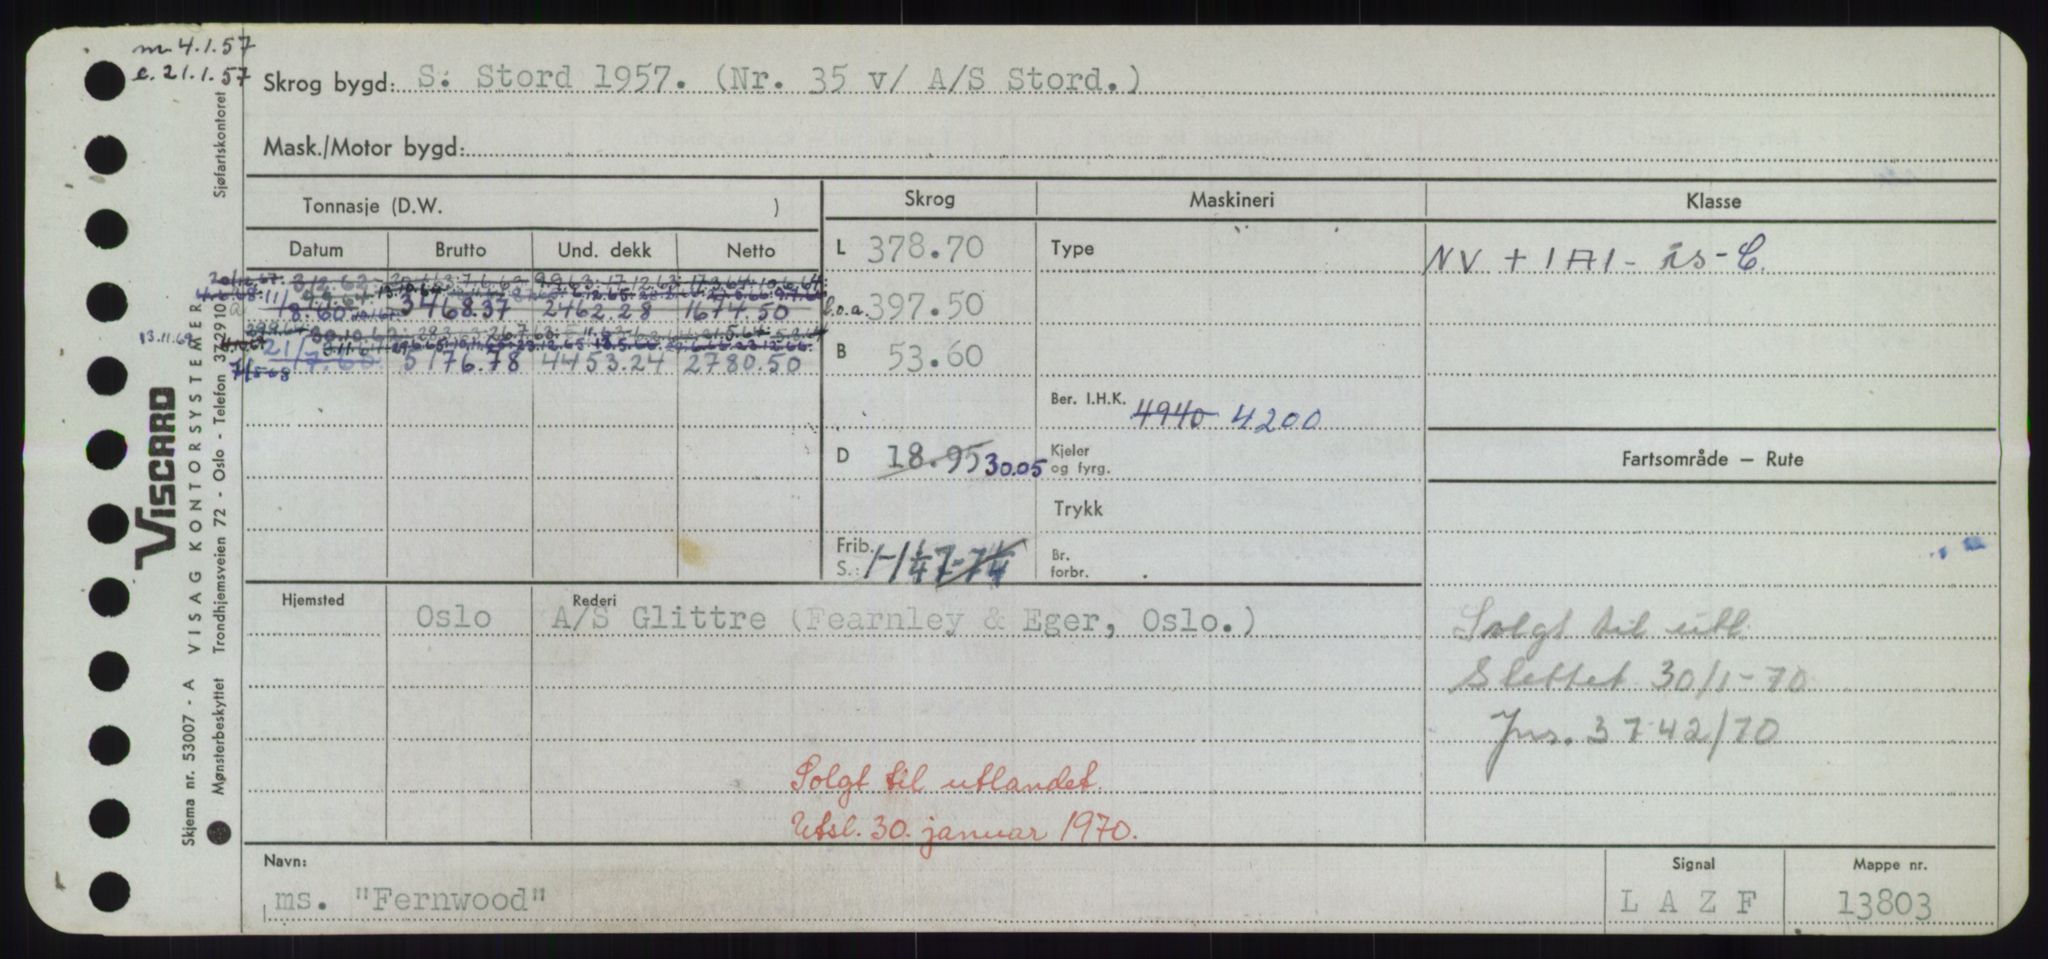 m 4.1.57
e. 21.1.57
Skrog bygd: S: Stord 1957. (Nr. 35 v/ A/S Stord.)
Mask./Motor bygd:
Tonnasje (D.W. )
Skrog Maskineri Klasse
Datum Brutto Und. dekk Netto
L 378.70 Type NV + 1A1 - is - C.
11/8.60 3468.37 2462.28 1674.50
l.o.a. 397.50
21/7.60 5176.78 4453.24 2780.50
B 53.60
13.11.69
Ber. I.H.K. 4940 4200
D 18.95 30.05 Kjeler og fyrg.
Fartsområde – Rute
Trykk
Frib. S.: Br. forbr.
Hjemsted Oslo Rederi A/S Glittre (Fearnley & Eger, Oslo.)
Solgt til utl.
Slettet 30/1-70
Jns. 3742/70
Solgt til utlandet.
Utsl. 30. januar 1970.
Navn: ms. "Fernwood"
Signal L A Z F
Mappe nr. 13803
VISCARD
Skjema nr. 53007 - A VISAG KONTORSYSTEMER
Mønsterbeskyttet Trondhjemsveien 72 - Oslo - Telefon 37 29 10 Sjøfartskontoret